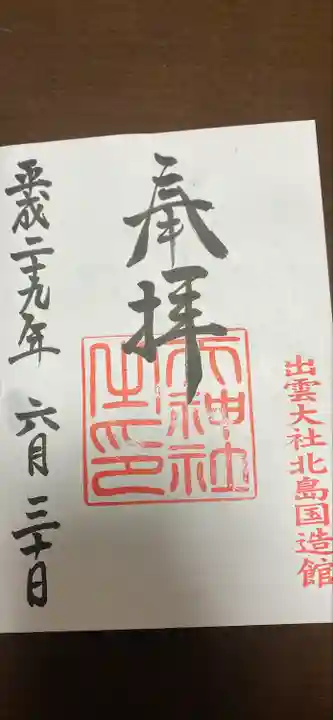 出雲大社北島国造館
奉拝
天神社
之印
平成二十九年 六月三十日